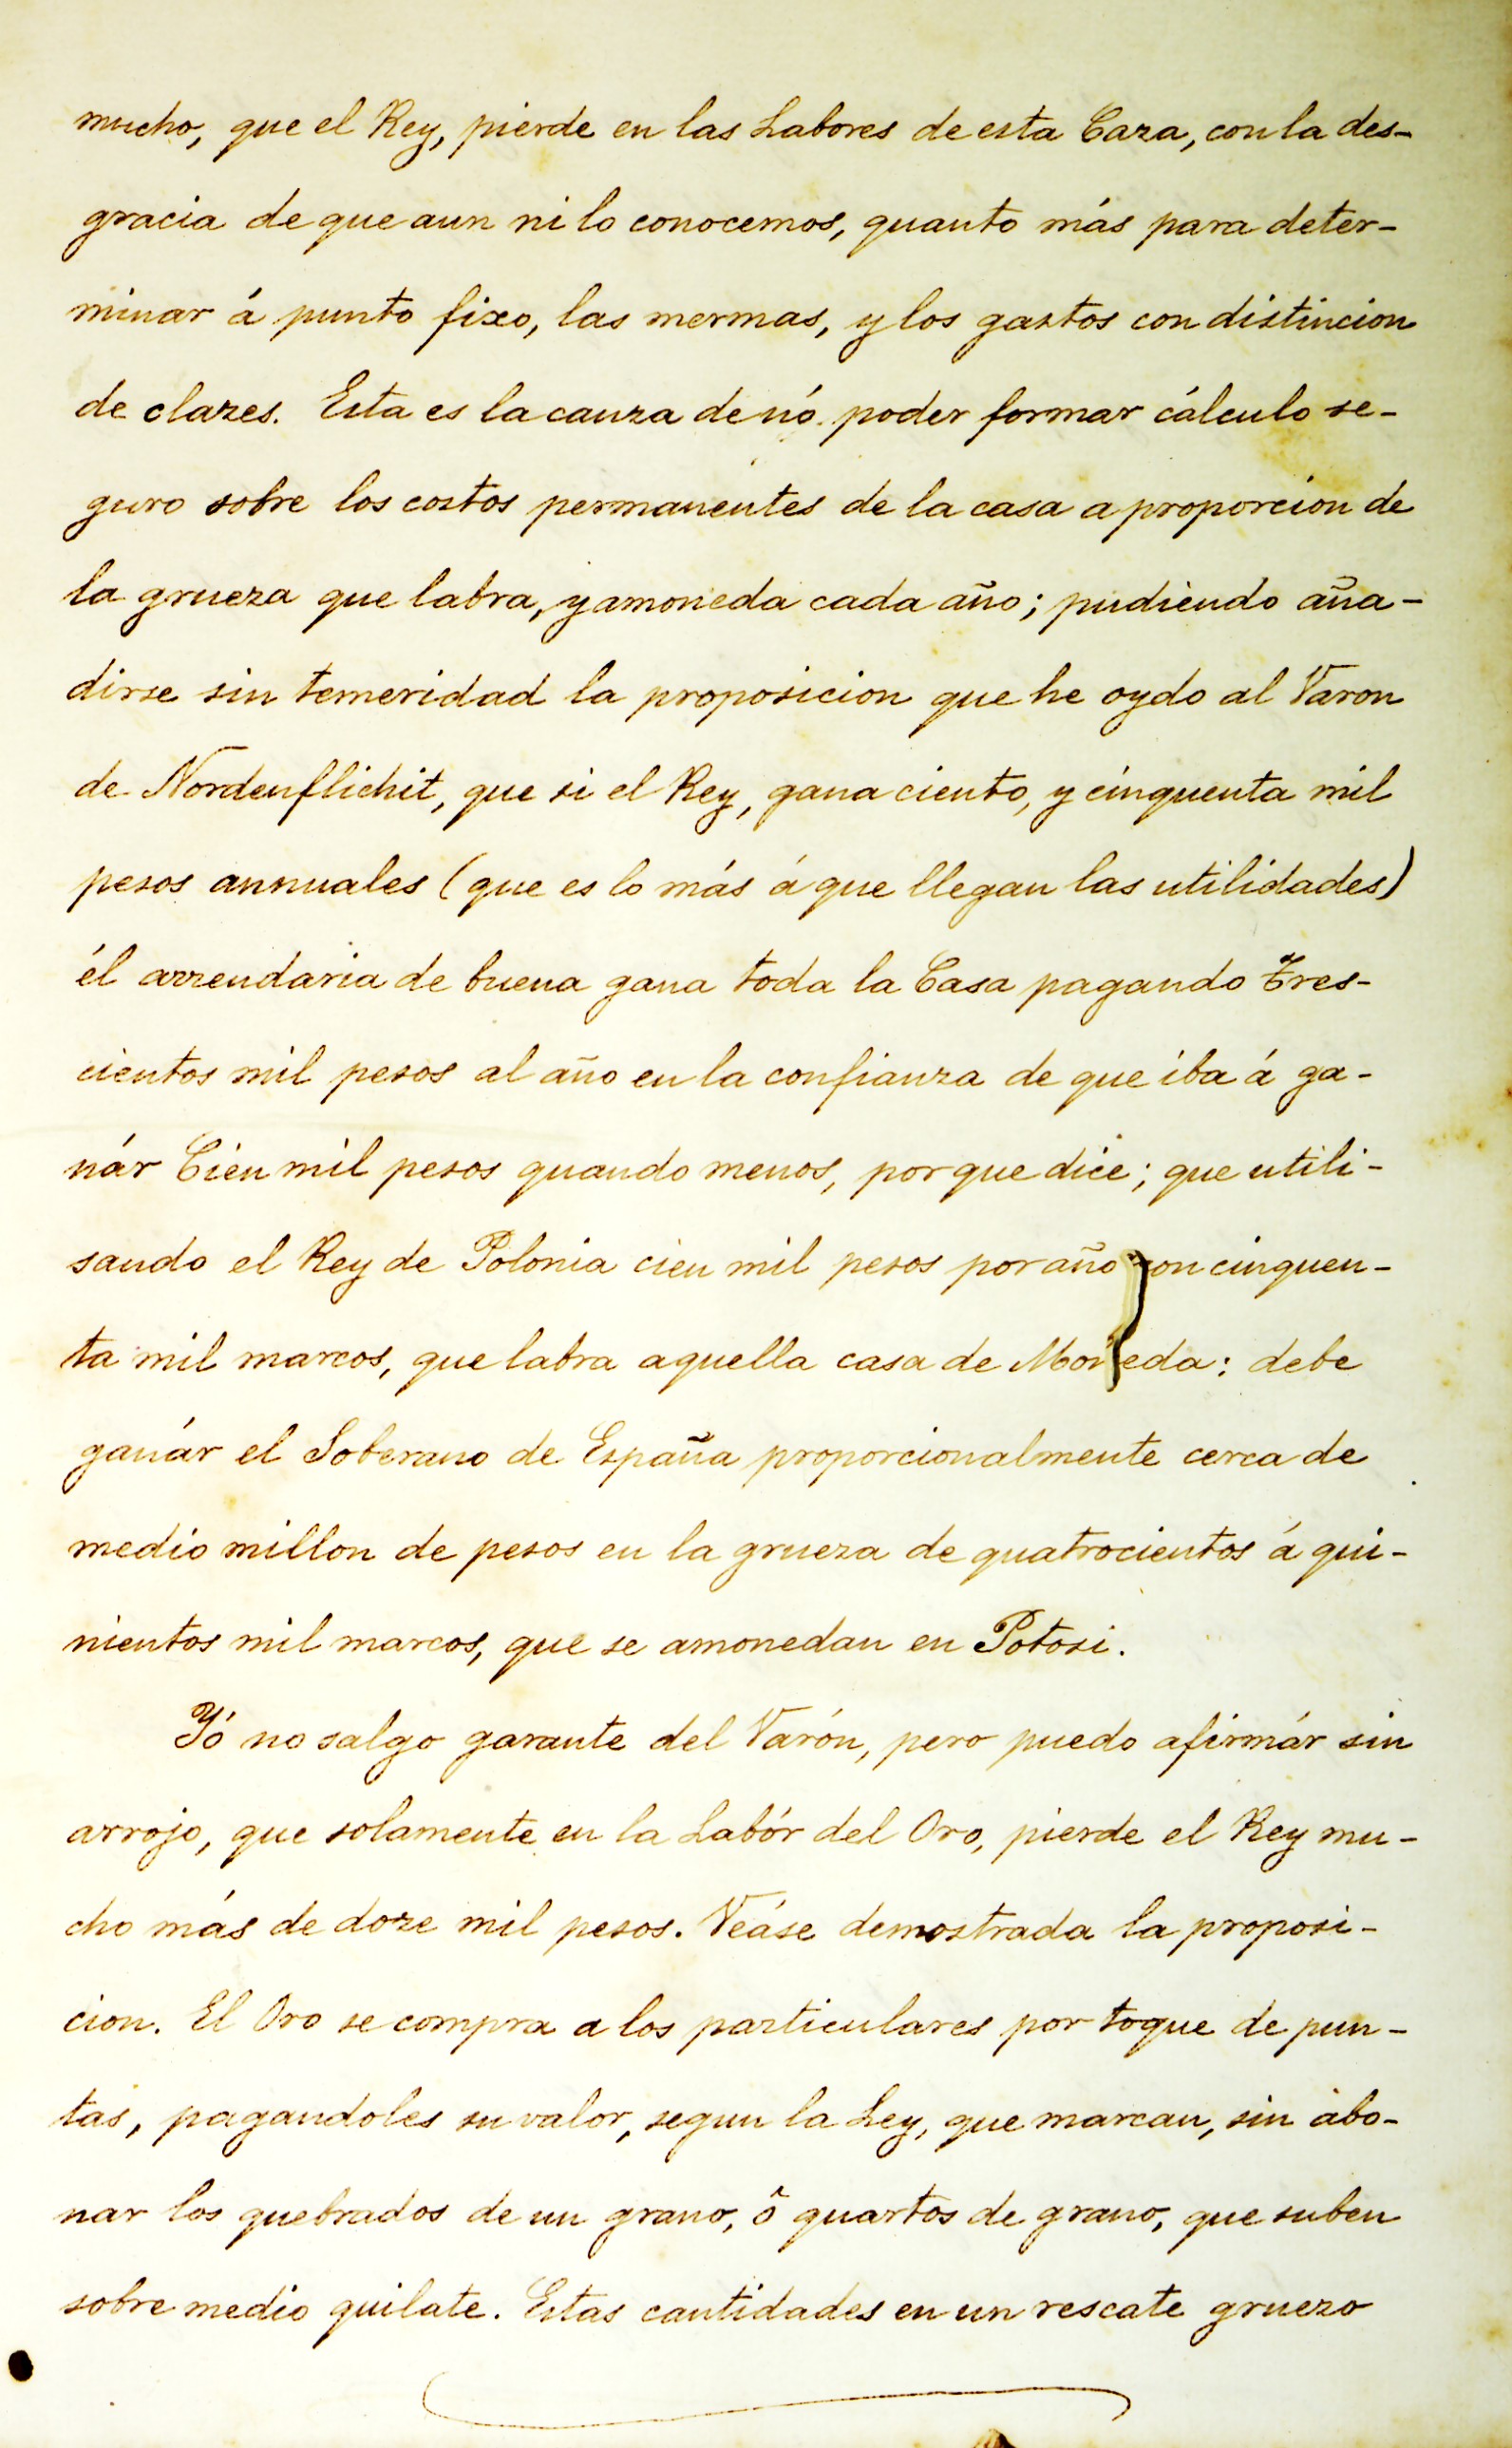 mucho, que el Rey, pierde en las Labores de esta Caza, con la des-
gracia de que aun ni lo conocemos, quanto más para deter-
minar á punto fixo, las mermas, y los gastos con distincion
de clazes. Esta es la cauza de nó poder formar cálculo se-
guro sobre los costos permanentes de la casa a proporcion de
la grueza que labra, y amoneda cada año; pudiendo aña-
dirse sin temeridad la proposicion que he oydo al Varon
de Nordenflichit, que si el Rey, gana ciento, y cinquenta mil
pesos annuales (que es lo más á que llegan las utilidades)
él arrendaria de buena gana toda la Casa pagando Tres-
cientos mil pesos al año en la confianza de que iba á ga-
nár Cien mil pesos quando menos, porque dice; que utili-
sando el Rey de Polonia cien mil pesos por año con cinquen-
ta mil marcos, que labra aquella casa de Moneda: debe
ganár el Soberano de España proporcionalmente cerca de
medio millon de pesos en la grueza de quatrocientos á qui-
nientos mil marcos, que se amonedan en Potosi.
Yó no salgo garante del Varón, pero puedo afirmár sin
arrojo, que solamente en la Labór del Oro, pierde el Rey mu-
cho más de doze mil pesos. Veáse demostrada la proposi-
cion. El Oro se compra a los particulares por toque de pun-
tas, pagandoles su valor, segun la Ley, que marcan, sin abo-
nar los quebrados de un grano, ô quartos de grano, que suben
sobre medio quilate. Estas cantidades en un rescate gruezo